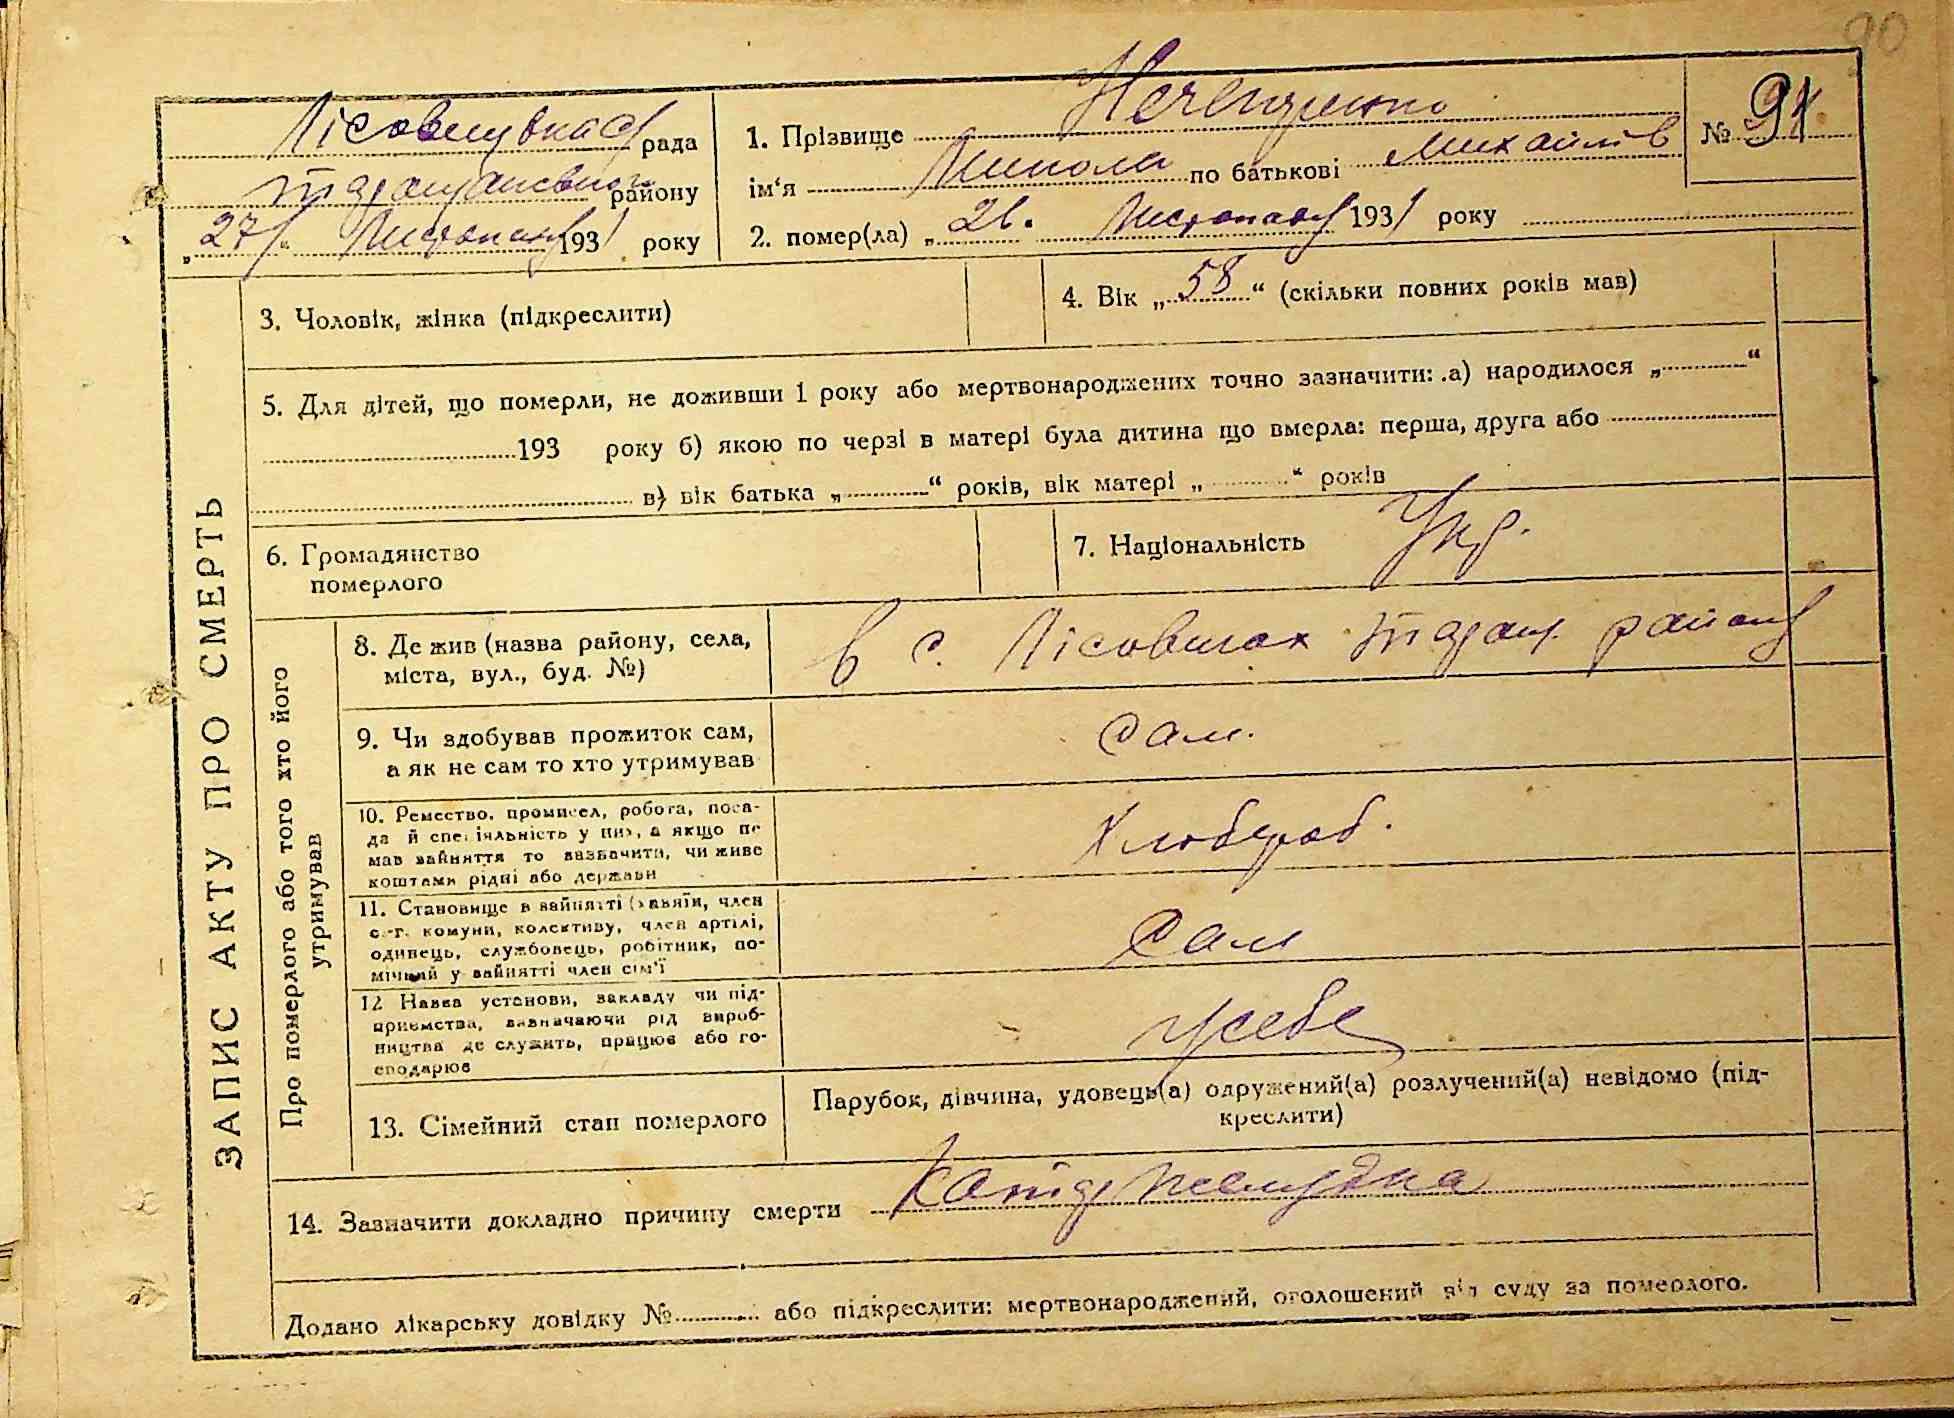 90
Лісовицька с/рада
таращанського району
„27“ Листопаду 1931 року
1. Прізвище
№ 91.
ім‘я Микола по батькові Михайлів
2. помер(ла) „26. Листопаду 1931 року
ЗАПИС АКТУ ПРО СМЕРТЬ
3. Чоловік, жінка (підкреслити)
4. Вік „58“ (скільки повних років мав)
5. Для дітей, що померли, не доживши 1 року або мертвонароджених точно зазначити: а) народилося „ “
193 року б) якою по черзі в матері була дитина що вмерла: перша, друга або
в) вік батька „ “ років, вік матері „ “ років
6. Громадянство
померлого
7. Національність Укр.
Про померлого або того хто його
утримував
8. Де жив (назва району, села,
міста, вул., буд. №)
в с. Лісовичах таращ. району
9. Чи здобував прожиток сам,
а як не сам то хто утримував
сам.
10. Ремество, промисел, робота, поса-
да й спеціяльність у них, а якщо не
мав зайняття то зазначити, чи живе
коштами рідні або держави
Хлібороб.
11. Становище в зайнятті (хазяїн, член
с.-г. комуни, колективу, член артілі,
одинець, службовець, робітник, по-
мічний у зайнятті член сім'ї
Сам
12 Назва установи, закладу чи під-
приємства, зазначаючи рід вироб-
ництва де служить, працює або го-
сподарює
у себе
13. Сімейний стан померлого
Парубок, дівчина, удовець(а) одружений(а) розлучений(а) невідомо (під-
креслити)
14. Зазначити докладно причину смерти Катар желудка
Додано лікарську довідку № або підкреслити: мертвонароджений, оголошений від суду за померлого.